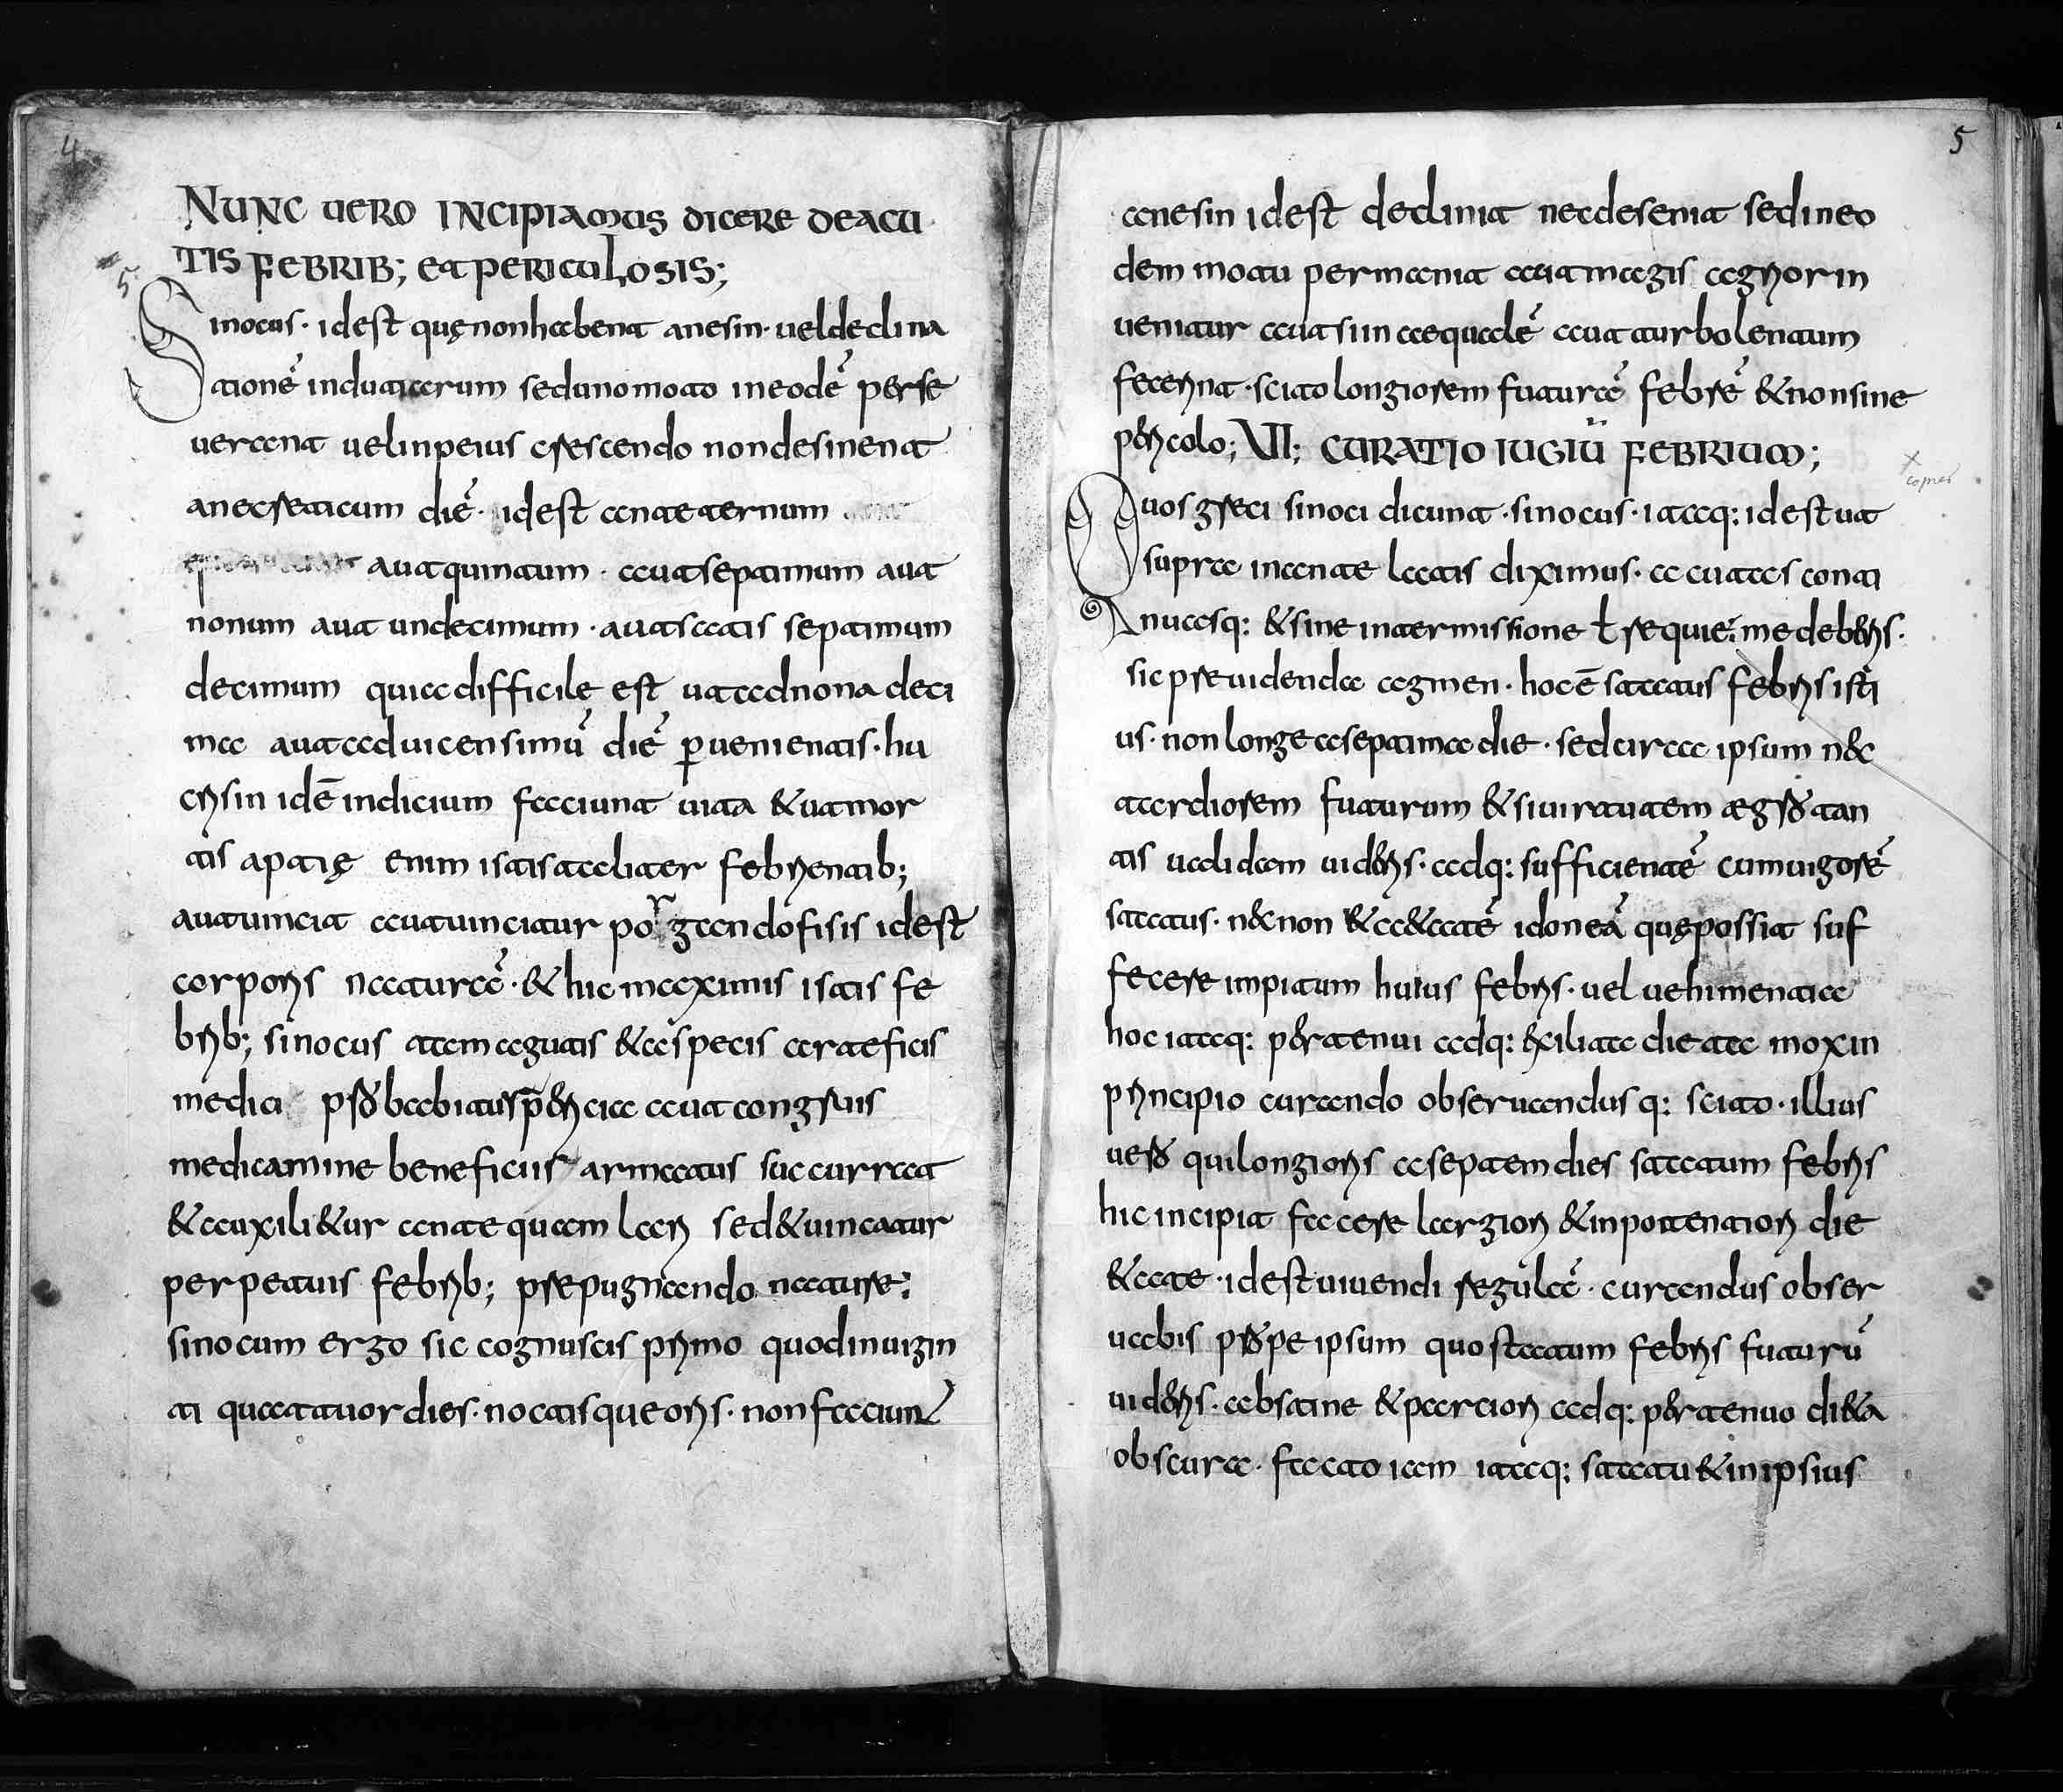 4
NUNC UERO INCIPIAMUS DICERE DEACU
TIS FEBRIB; ETPERICULOSIS;
5
Sinocus · idest quęnonhabent anesin · ueldeclina
tionē indutiarum sedunomoto ineodē perse
uerant uelinpeius crescendo nondesinent
anecreticum diē · idest anteternum
autquintum · autseptimum aut
nonum aut undecimum · autsatis septimum
decimum quiadifficile est utadnona deci
ma autaduicensimū diē ꝑuenientis · hu
crisin idē indicium faciunt uita &utmor
tis apatię enim ististaliter febrientib;
autuincit autuincitur porgandofisis idest
corporis naturā · & hic maximis istis fe
brib; sinocus tamagutis &aspecis arteficis
medici probabitusp̄ericia autcongruis
medicamine beneficiis armatus succurrat
&auxili&ur antequam lari sed&uincatur
perpetuis febrib; prepugnando nature;
sinocum ergo sic cognuscis primo quodinuigin
ti quattuordies · noctisqueoris · nonfaciunt
5
anesin idest declinit necdesenit sedineo
dem motu permanit etiamagis agrior in
uenitur autsun aequalē aut turbolentum
fecerint · scitolongiorem futurā febrē &nonsine
pericolo; VII; CURATIO IUGIŪ FEBRIUM;
Quosgreci sinoci dicunt · sinocus · itaq: idestut
supra inante latis diximus · acutas conti
nuasq: &sine intermissione ł requiē: medeberis ·
sic preuidenda agmen · hocē statatus febris isti
us · non longe aseptima die · sedcirca ipsum n&
tardiorem futurum &siuirtutem ægrotan
tis ualidam uideris · adq: sufficientē cumuigorē
statatus · n&non &a&atē idoneā quępossit suf
fecere impitum huius febris · uel uehimentia
hoc itaq: pertenui adq: exiliata dieta moxin
principio curando obseruandus q: scito · illius
uero quilongioris aseptem dies statatum febris
hic incipit facere largiori &inpotentiori die
&ate · idestuiuendi regulā · curandus obser
uabis prope ipsum quo statatum febris futurū
uideris · abstine &parciori adq: pertenuo di&a
obscura · factoiam itaq: statatu &inipsius